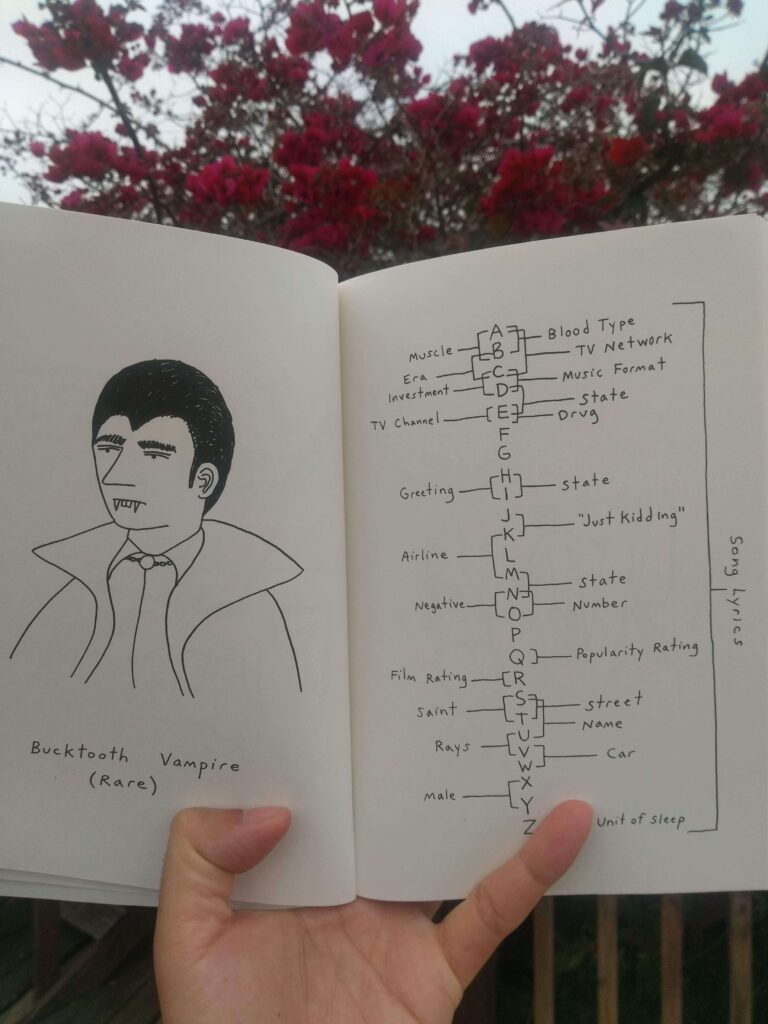 Bucktooth Vampire
(Rare)
A
B
C
D
E
F
G
H
I
J
K
L
M
N
O
P
Q
R
S
T
U
V
W
X
Y
Z
Muscle
Era
Investment
TV Channel
Greeting
Airline
Negative
Film Rating
Saint
Rays
Male
Blood Type
TV Network
Music Format
State
Drug
State
"Just Kidding"
State
Number
Popularity Rating
Street
Name
Car
Unit of Sleep
Song Lyrics